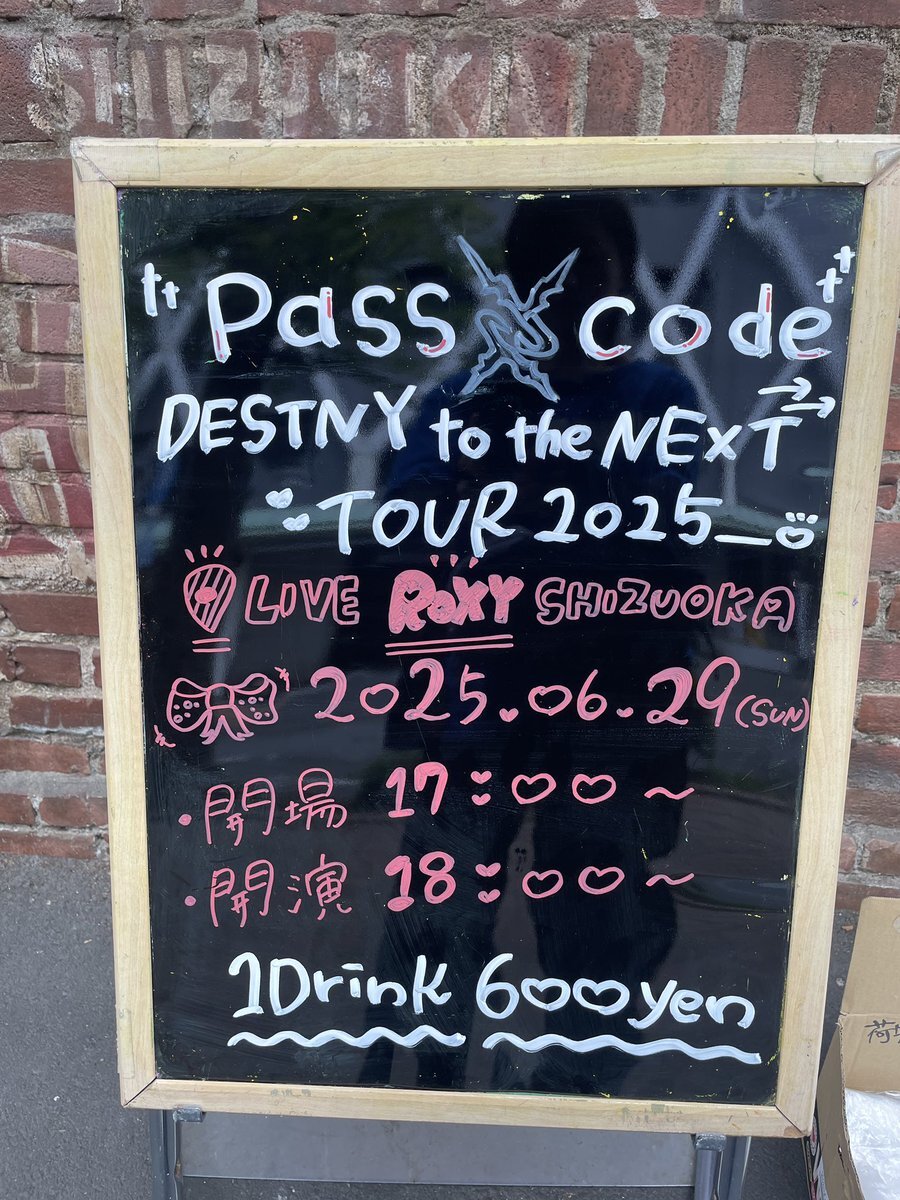 SHIZUOKA
Pass code
DESTNY to the NExT
TOUR 2025_
LIVE ROXY SHIZUOKA
2025.06.29(SUN)
・開場 17:00～
・開演 18:00～
1Drink 600yen
荷